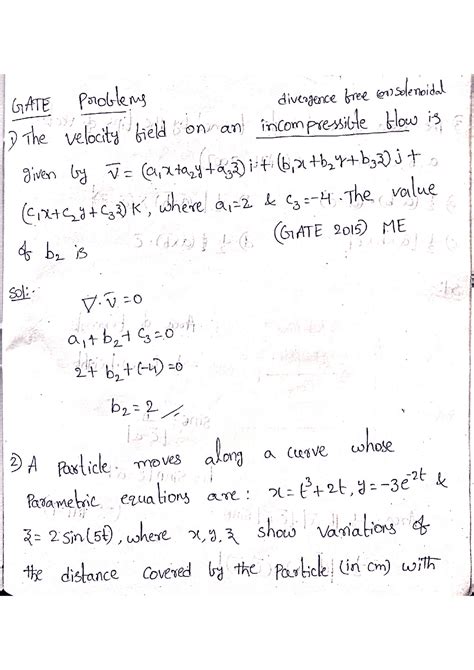 GATE Problems
divergence free (or) solenoidal
1) The velocity field on an incompressible flow is
given by V̄ = (a₁x+a₂y+a₃z)i + (b₁x+b₂y+b₃z)j +
(c₁x+c₂y+c₃z)K, where a₁=2 & c₃=-4. The value
of b₂ is
(GATE 2015) ME
sol:-
∇·V̄ = 0
a₁+b₂+c₃=0
2+b₂+(-4)=0
b₂=2
2) A Particle moves along a curve whose
Parametric equations are: x=t³+2t, y=-3e⁻²ᵗ &
z=2sin(5t), where x,y,z show variations of
the distance covered by the Particle (in cm) with